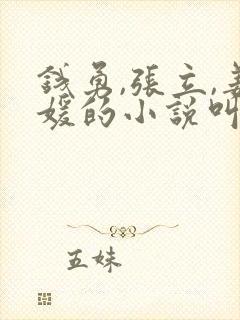 錢勇,張立,姜
媛的小說叫
五妹